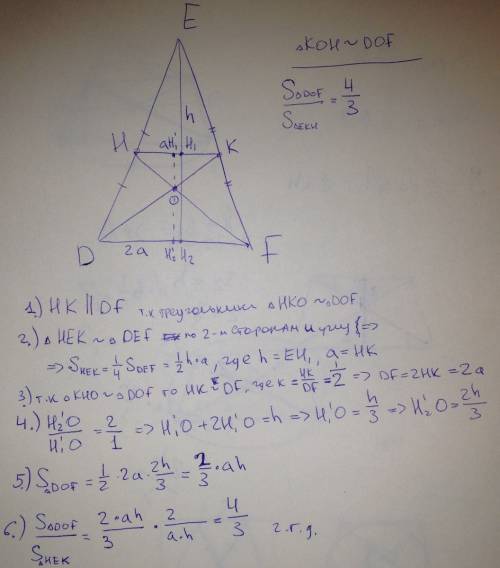 E
△KOH ~ DOF
S△DOF / S△EKH = 4/3
h
H aH₁' H₁ K
O
D 2a H₂' H₂ F
1.) HK || DF т.к треугольники △HKO ~ △DOF.
2.) △HEK ~ △DEF по 2-м сторонам и углу =>
=> S HEK = 1/4 S DEF = 1/2 h·a, где h = EH₁, a = HK
3) т.к △KHO ~ △DOF то HK DF, где к = HK/DF = 1/2 => DF = 2HK = 2a
4.) H₂'O / H₁'O = 2/1 => H₁'O + 2H₁'O = h => H₁'O = h/3 => H₂'O = 2h/3
5.) S△DOF = 1/2 · 2a · 2h/3 = 2/3 · ah
6.) S△DOF / S△HEK = 2·ah/3 · 2/a·h = 4/3 ч.т.д.